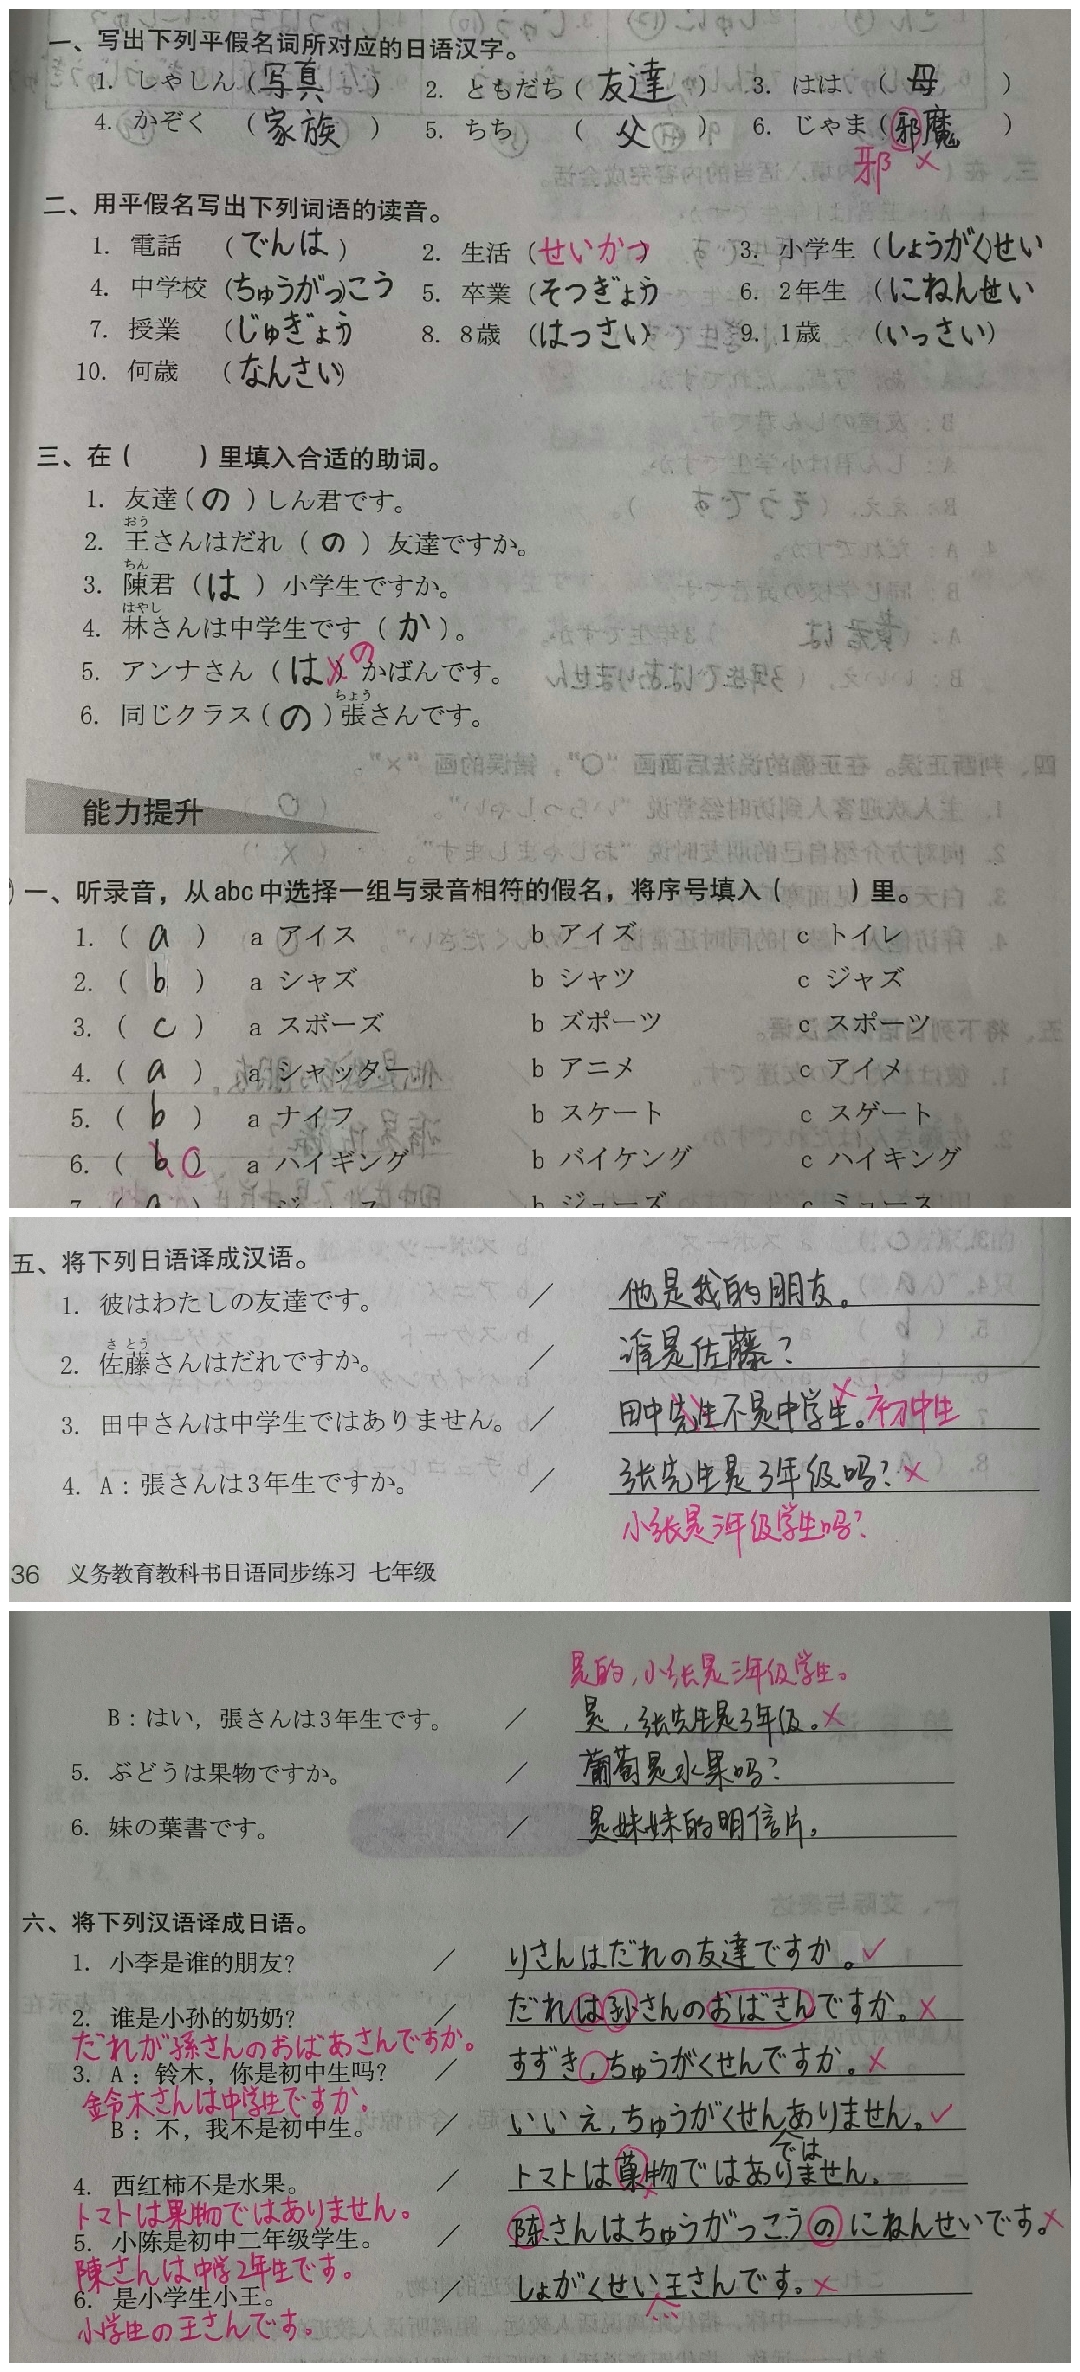 一、写出下列平假名词所对应的日语汉字。
1. しゃしん(写真) 2. ともだち(友達) 3. はは (母)
4. かぞく (家族) 5. ちち (父) 6. じゃま(邪魔)
邪 ×
二、用平假名写出下列词语的读音。
1. 電話 (でんは) 2. 生活 (せいかつ) 3. 小学生 (しょうがく)せい
4. 中学校 (ちゅうがっ)こう 5. 卒業 (そつぎょう) 6. 2年生 (にねんせい
7. 授業 (じゅぎょう 8. 8歳 (はっさい) 9. 1歳 (いっさい)
10. 何歳 (なんさい)
三、在( )里填入合适的助词。
1. 友達(の)しん君です。
おう
2. 王さんはだれ(の)友達ですか。
ちん
3. 陳君(は)小学生ですか。
はやし
4. 林さんは中学生です(か)。
の
5. アンナさん(は)かばんです。
ちょう
6. 同じクラス(の)張さんです。
能力提升
一、听录音，从abc中选择一组与录音相符的假名，将序号填入( )里。
1. (a) a アイス b アイズ c トイレ
2. (b) a シャズ b シャツ c ジャズ
3. (c) a スボーズ b ズポーツ c スポーツ
4. (a) a シャッター b アニメ c アイメ
5. (b) a ナイフ b スケート c スゲート
6. (b C) a ハイギング b バイケング c ハイキング
五、将下列日语译成汉语。
1. 彼はわたしの友達です。 / 他是我的朋友。
さとう
2. 佐藤さんはだれですか。 / 谁是佐藤?
3. 田中さんは中学生ではありません。 / 田中先生不是中学生。× 初中生
4. A：張さんは3年生ですか。 / 张先生是3年级吗?×
小张是三年级学生吗?
36 义务教育教科书日语同步练习 七年级
是的,小张是三年级学生。
B：はい，張さんは3年生です。 / 是,张先生是3年级。×
5. ぶどうは果物ですか。 / 葡萄是水果吗?
6. 妹の葉書です。 / 是妹妹的明信片。
六、将下列汉语译成日语。
1. 小李是谁的朋友? / りさんはだれの友達ですか。✓
2. 谁是小孙的奶奶? / だれは孙さんのおばさんですか。×
だれが孫さんのおばあさんですか。
3. A：铃木，你是初中生吗? / すずき,ちゅうがくせんですか。×
鈴木さんは中学生ですか。
B：不，我不是初中生。 / いいえ,ちゅうがくせんありません。✓
では
4. 西红柿不是水果。 / トマトは菓物ではありません。
トマトは果物ではありません。
5. 小陈是初中二年级学生。 / 陈さんはちゅうがっこうのにねんせいです。×
陳さんは中学2年生です。
6. 是小学生小王。 / しょがくせい王さんです。×
小学生の王さんです。